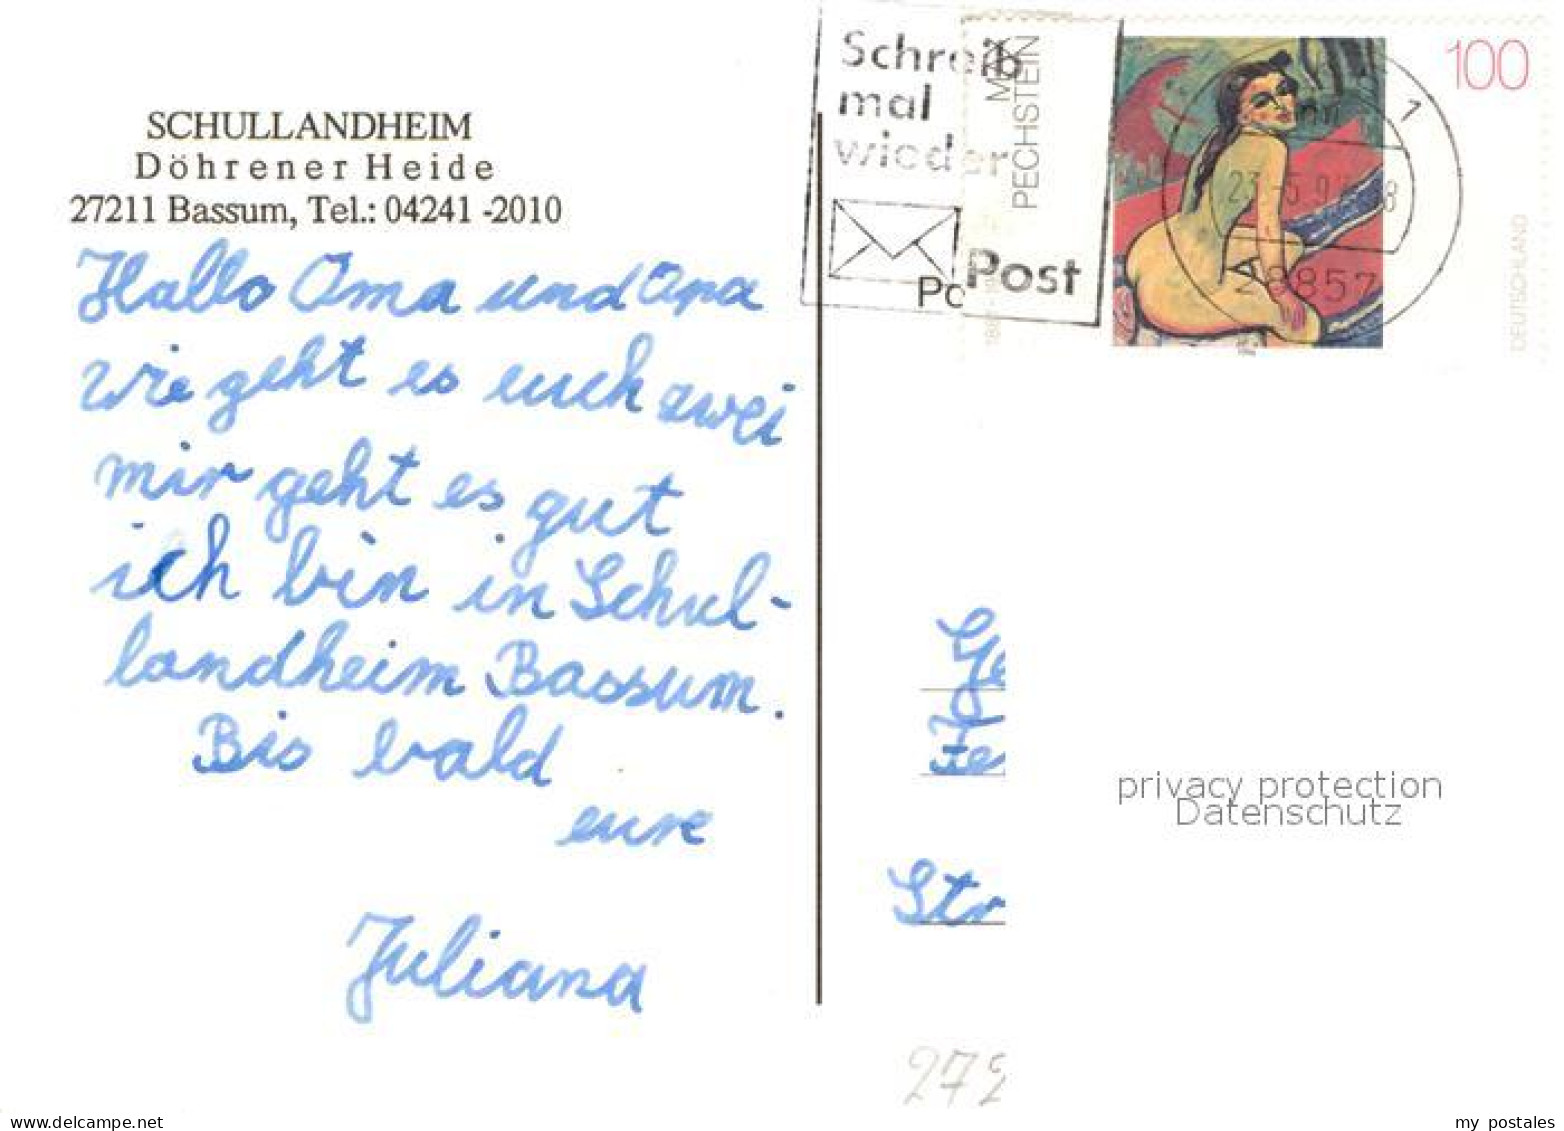 SCHULLANDHEIM
Döhrener Heide
27211 Bassum, Tel.: 04241 -2010
Hallo Oma und Opa
wie geht es euch zwei
mir geht es gut
ich bin in Schul-
landheim Bassum.
Bis bald
eure
Juliana
Schreib
mal
wieder
Post
MAX
PECHSTEIN
100
DEUTSCHLAND
28857
1
Ge
Str
privacy protection
Datenschutz
272
akpool.de
my postales